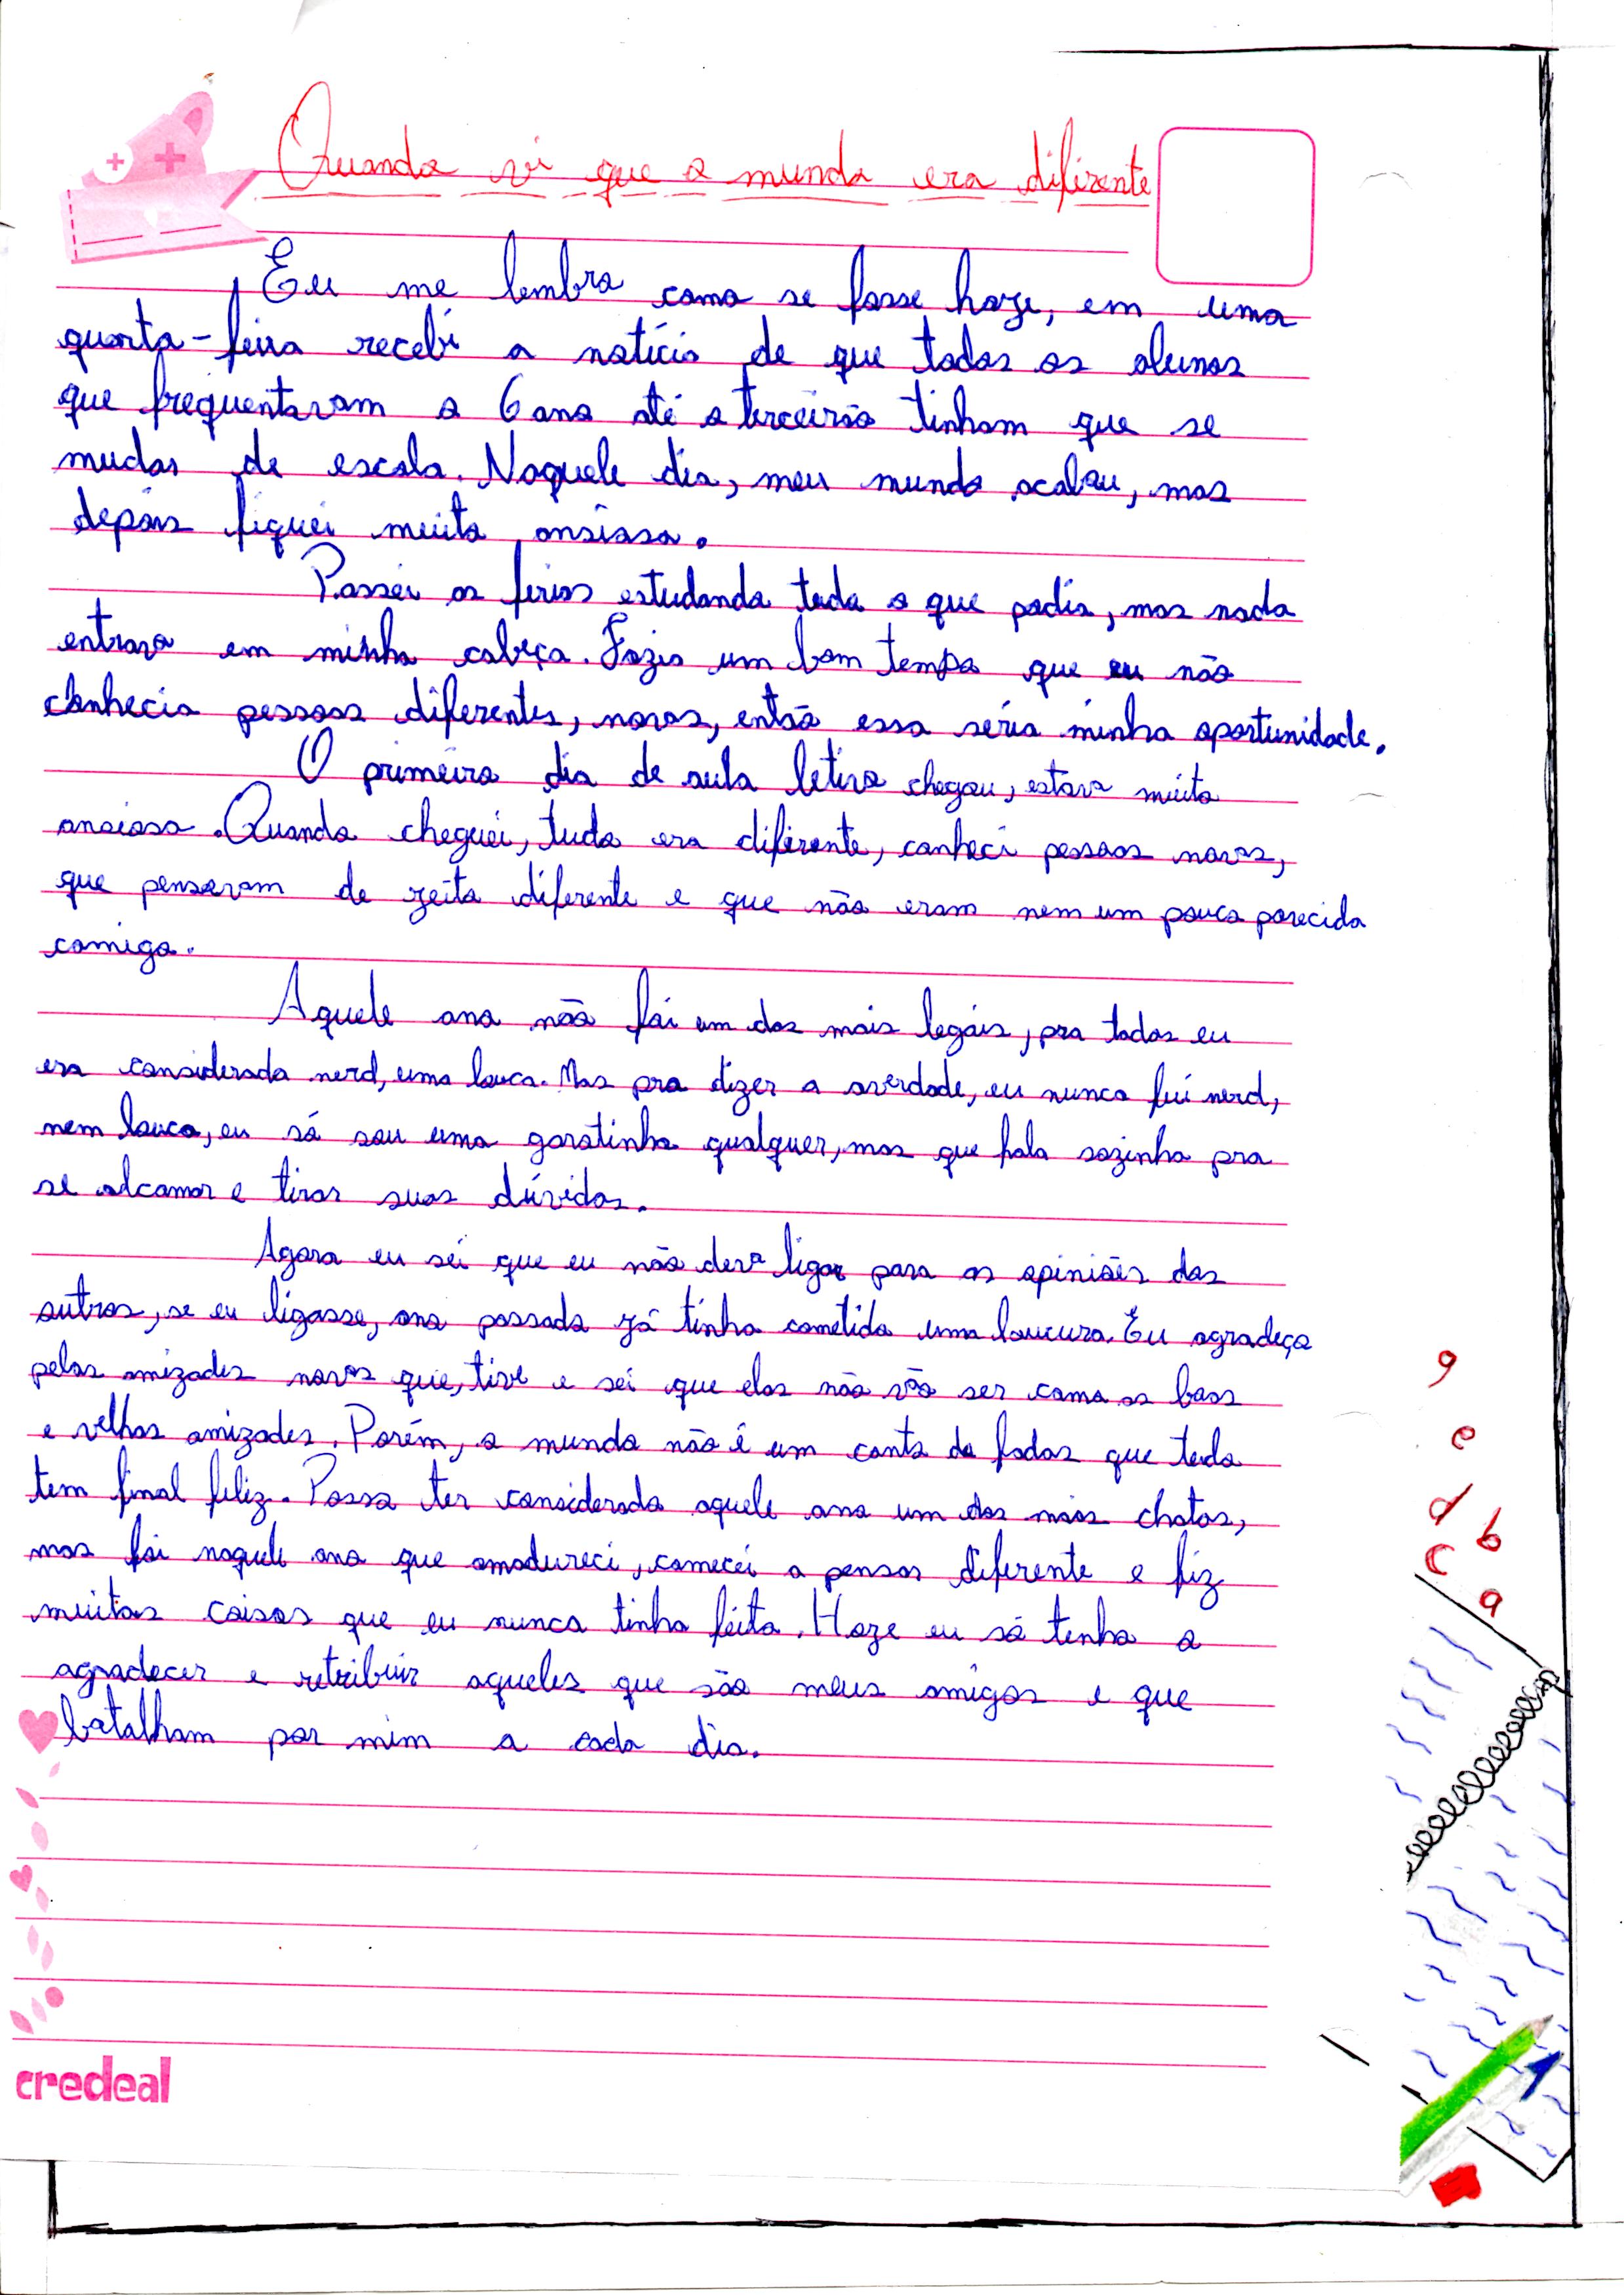 Quando vi que o mundo era diferente
Eu me lembro como se fosse hoje, em uma
quarta-feira recebi a notícia de que todos os alunos
que frequentavam o 6 ano até o terceirão tinham que se
mudar de escola. Naquele dia, meu mundo acabou, mas
depois fiquei muito ansiosa.
Passei as férias estudando tudo o que podia, mas nada
entrava em minha cabeça. Fazia um bom tempo que eu não
conhecia pessoas diferentes, novas, então essa seria minha oportunidade.
O primeiro dia de aula letivo chegou, estava muito
ansiosa. Quando cheguei, tudo era diferente, conheci pessoas novas,
que pensavam de jeito diferente e que não eram nem um pouco parecida
comigo.
Aquele ano não foi um dos mais legais, pra todos eu
era considerada nerd, uma louca. Mas pra dizer a averdade, eu nunca fui nerd,
nem louca, eu só sou uma garotinha qualquer, mas que fala sozinha pra
se alcamar e tirar suas dúvidas.
Agora eu sei que eu não devo ligar para as opiniões dos
outros, se eu ligasse, ano passado já tinha cometido uma loucura. Eu agradeço
pelas amizades novas que, tive e sei que elas não vão ser como as boas
e velhas amizades. Porém, o mundo não é um conto de fadas que tudo
tem final feliz. Posso ter considerado aquele ano um dos mais chatos,
mas foi naquele ano que amadureci, comecei a pensar diferente e fiz
muitas coisas que eu nunca tinha feito. Hoje eu só tenho a
agradecer e retribuir aqueles que são meus amigos e que
batalham por mim a cada dia.
g
e
d b
c a
credeal